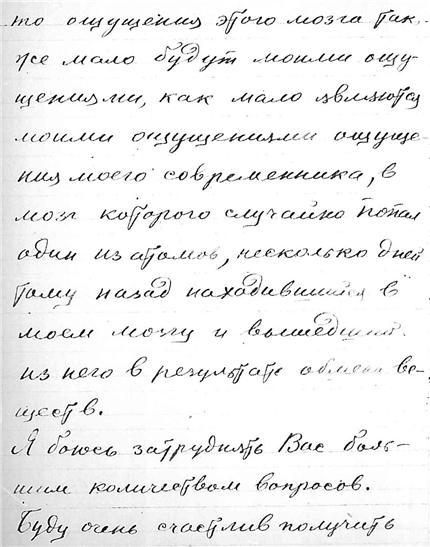 то ощущения этого мозга так-
же мало будут моими ощу-
щениями, как мало являются
моими ощущениями ощуще-
ния моего современника, в
мозг которого случайно попал
один из атомов, несколько дней
тому назад находившийся в
моем мозгу и вышедший
из него в результате обмена ве-
ществ.
Я боюсь затруднять Вас боль-
шим количеством вопросов.
Буду очень счастлив получить